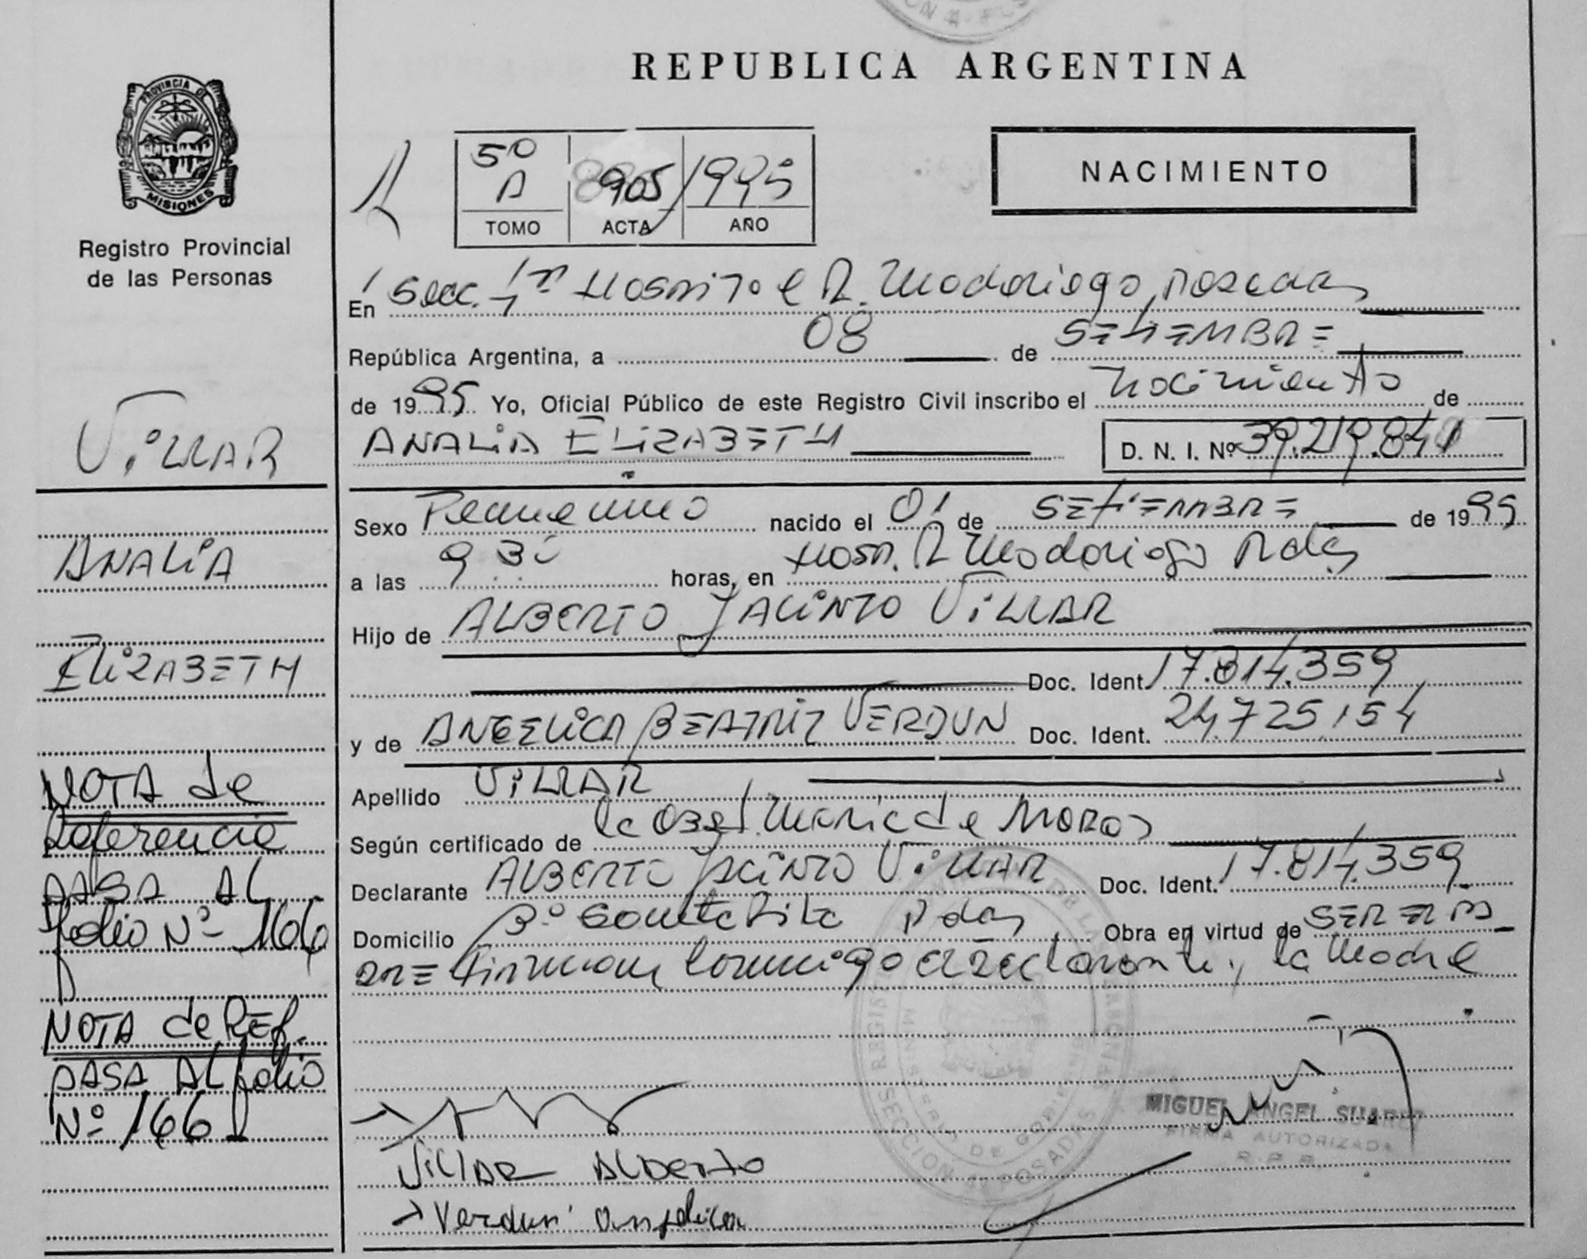 REPUBLICA ARGENTINA
PROVINCIA DE
MISIONES
Registro Provincial
de las Personas
5º
A
905
1995
TOMO
ACTA
AÑO
NACIMIENTO
En Secc. 1ra Hospital R. Madariaga, Posadas
República Argentina, a 08 de SETIEMBRE
de 1995 Yo, Oficial Público de este Registro Civil inscribo el Nacimiento de
ANALIA ELIZABETH
D. N. I. Nº 39.219.841
Sexo Femenino nacido el 01 de SETIEMBRE de 1995
a las 9 30 horas, en Hosp. R Madariaga Pdas
Hijo de ALBERTO JACINTO VILLAR
Doc. Ident. 17.814.359
y de ANGELICA BEATRIZ VERDUN Doc. Ident. 24725154
Apellido VILLAR
Según certificado de la Obst. Maria de Moras
Declarante ALBERTO JACINTO VILLAR Doc. Ident. 17.814.359
Domicilio Bº Santa Rita Pdas Obra en virtud de SER EL PA
DRE firman conmigo el declarante, la madre
VILLAR
ANALIA
ELIZABETH
NOTA de
Referencia
PASA AL
folio Nº 166
NOTA de REF.
PASA AL folio
Nº 166
MIGUEL ANGEL SUAREZ
FIRMA AUTORIZADA
R. P. P.
Villar Alberto
Verdun Angelica